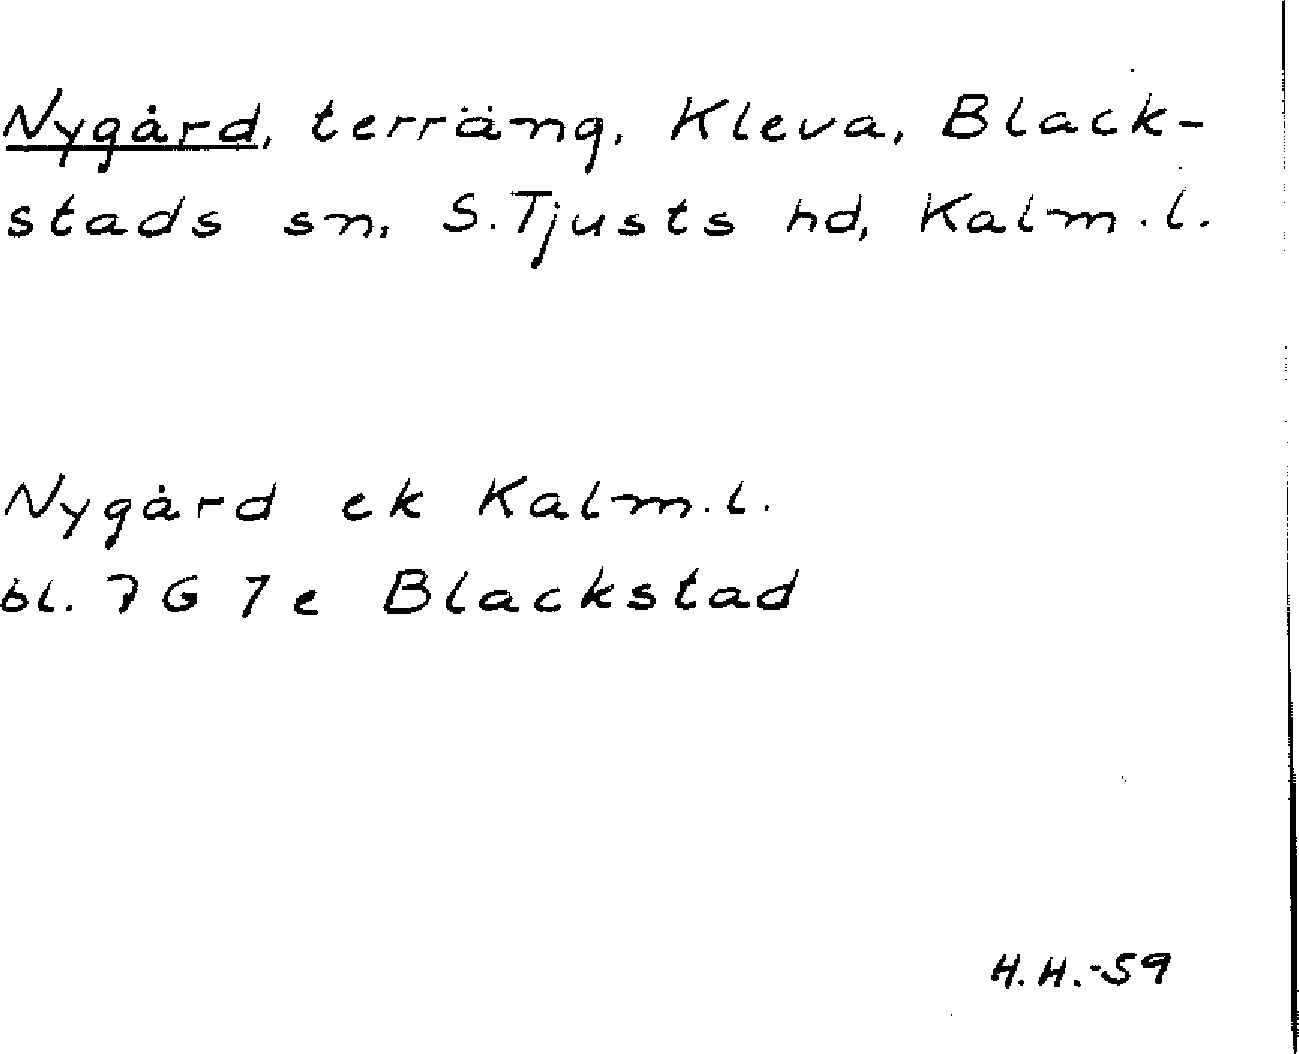 Nygård, terräng, Kleva, Black-
stads sn, S. Tjusts hd, Kalm. l.
Nygård ek Kalm. l.
bl. 7 G 7 e Blackstad
H. H. -59